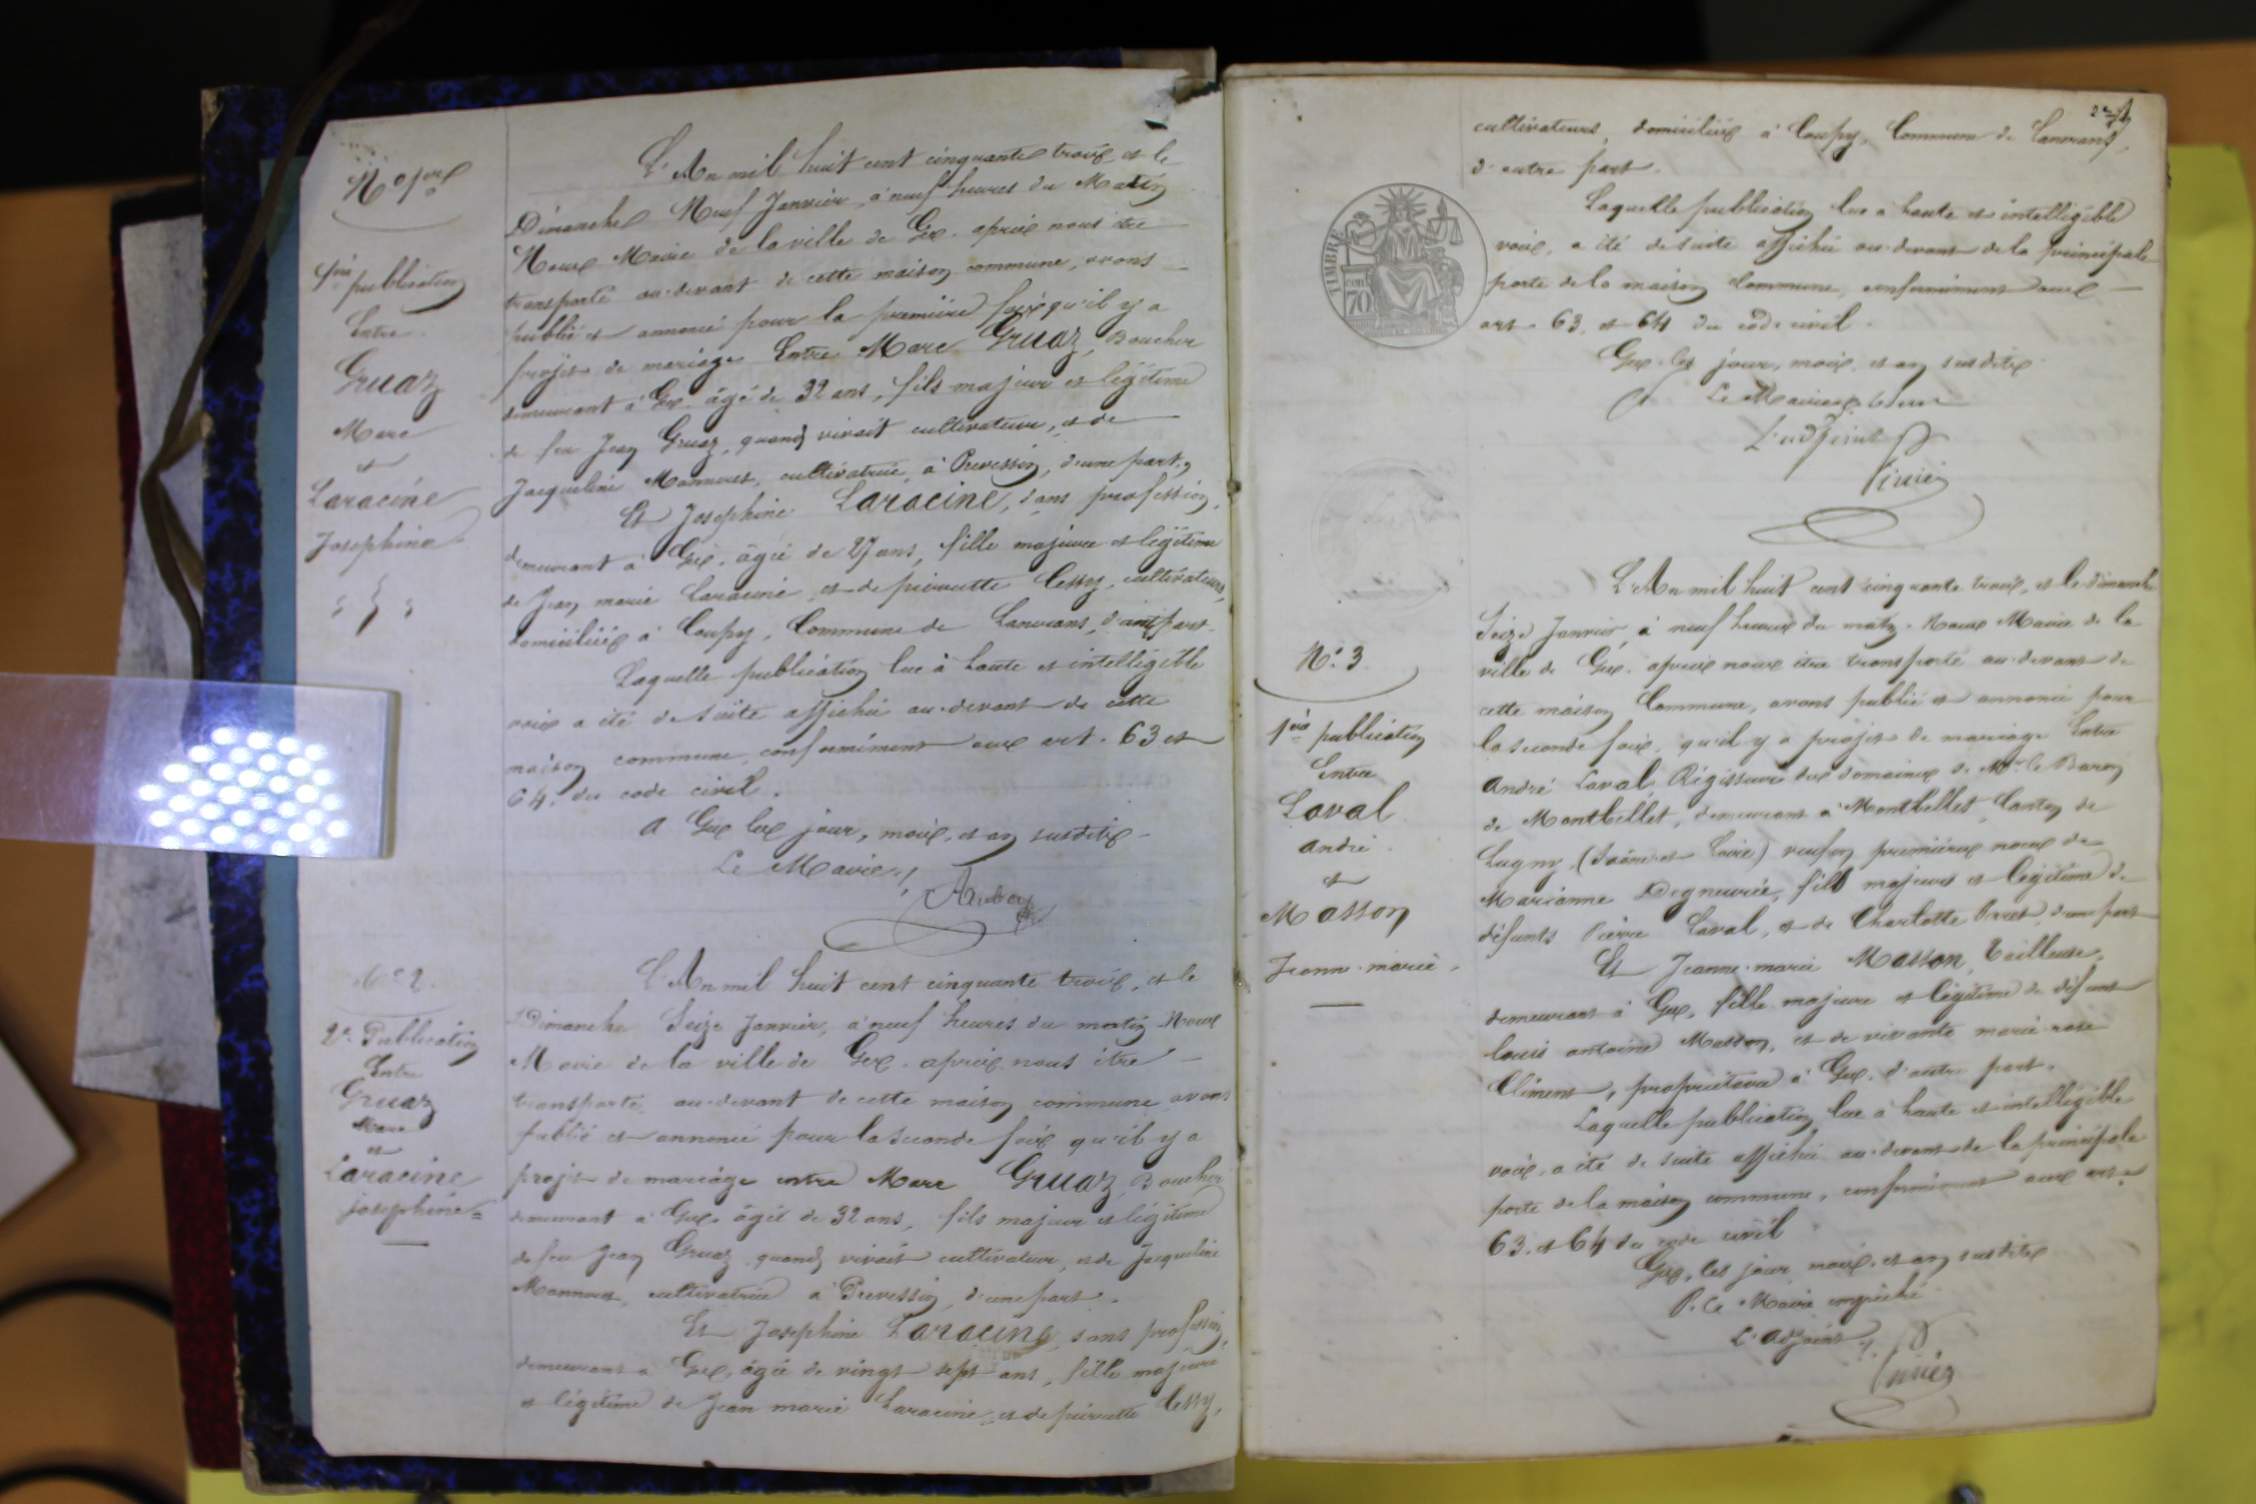 N° 1er
1ère publication
Entre
Gruaz
Marc
et
Laracine
Josephine
L'An mil huit cent cinquante trois et le
Dimanche Neuf Janvier, à neuf heures du Matin
Nous Maire de la ville de Gex. après nous être
transporté au-devant de cette maison commune, avons
publié et annoncé pour la première fois qu'il y a
projet de mariage Entre Marc Gruaz, Boucher
demeurant à Gex. âgé de 32 ans, fils majeur et légitime
de feu Jean Gruaz, quand vivait cultivateur, et de
Jacqueline Monnoret, cultivatrice, à Prevessin, d'une part,
Et Josephine Laracine, sans profession,
demeurant à Gex. âgée de 27 ans, fille majeure et légitime
de Jean marie Laracine et de pierrette Cessy, cultivateurs,
domiciliés à Coupy, Commune de Lancrans, d'autre part.
Laquelle publication lue à haute et intelligible
voix a été de suite affichée au-devant de cette
maison commune, conformément aux art. 63 et
64. du code civil.
A Gex les jour, mois, et an susdits.
Le Maire,
N° 2.
2e Publication
Entre
Gruaz
Marc
et
Laracine
josephine =
L'An mil huit cent cinquante trois, et le
Dimanche Seize Janvier, à neuf heures du matin Nous
Maire de la ville de Gex. après nous être
transporté au-devant de cette maison commune avons
publié et annoncé pour la seconde fois qu'il y a
projet de mariage entre Marc Gruaz, Boucher
demeurant à Gex. âgé de 32 ans, fils majeur et légitime
de feu Jean Gruaz quand vivait cultivateur, et de Jacqueline
Monnoret, cultivatrice à Prevessin, d'une part.
Et Josephine Laracine, sans profession,
demeurant à Gex, âgée de vingt sept ans, fille majeure
et légitime de Jean marie Laracine, et de pierrette Cessy,
cultivateurs, domiciliés à Coupy, Commune de Lancrans,
d'autre part.
TIMBRE
70
Laquelle publication lue à haute et intelligible
voix, a été de suite affichée au-devant de la principale
porte de la maison Commune, conformément aux
art. 63. et 64 du code civil.
Gex. les jour, mois, et an susdits.
L'adjoint
N° 3
1ère publication
Entre
Laval
André
et
Masson
Jeanne-marie.
L'An mil huit cent cinquante trois, et le dimanche
Seize Janvier, à neuf heures du matin. Nous Maire de la
ville de Gex. après nous être transporté au-devant de
cette maison Commune, avons publié et annoncé pour
la seconde fois, qu'il y a projet de mariage Entre
André Laval, Régisseur des domaines de Mr. le Baron
de Montbellet, demeurant à Montbellet, Canton de
Lugny (Saône et Loire) veuf en premières noces de
Marianne, fils majeur et légitime de
défunts Pierre Laval, et de Charlotte, d'une part
Et Jeanne-marie Masson, Tailleuse,
demeurant à Gex, fille majeure et légitime de défunt
louis antoine Masson, et de vivante marie rose
Clément, propriétaire à Gex. d'autre part.
Laquelle publication lue à haute et intelligible
voix, a été de suite affichée au-devant de la principale
porte de la maison commune, conformément aux art.
63. et 64 du code civil
Gex, les jour, mois, et an susdits
P. Le Maire empêché
L'adjoint